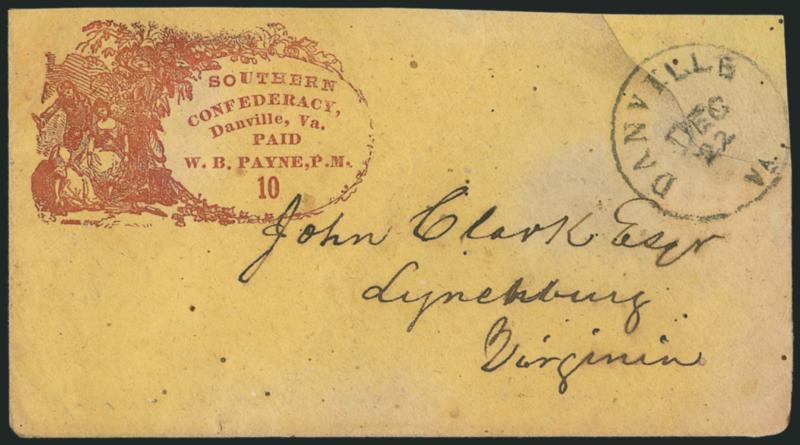 SOUTHERN
CONFEDERACY,
Danville, Va.
PAID
W. B. PAYNE, P.M.
10
DANVILLE VA.
DEC
John Clark Esqr
Lynchburg
Virginia